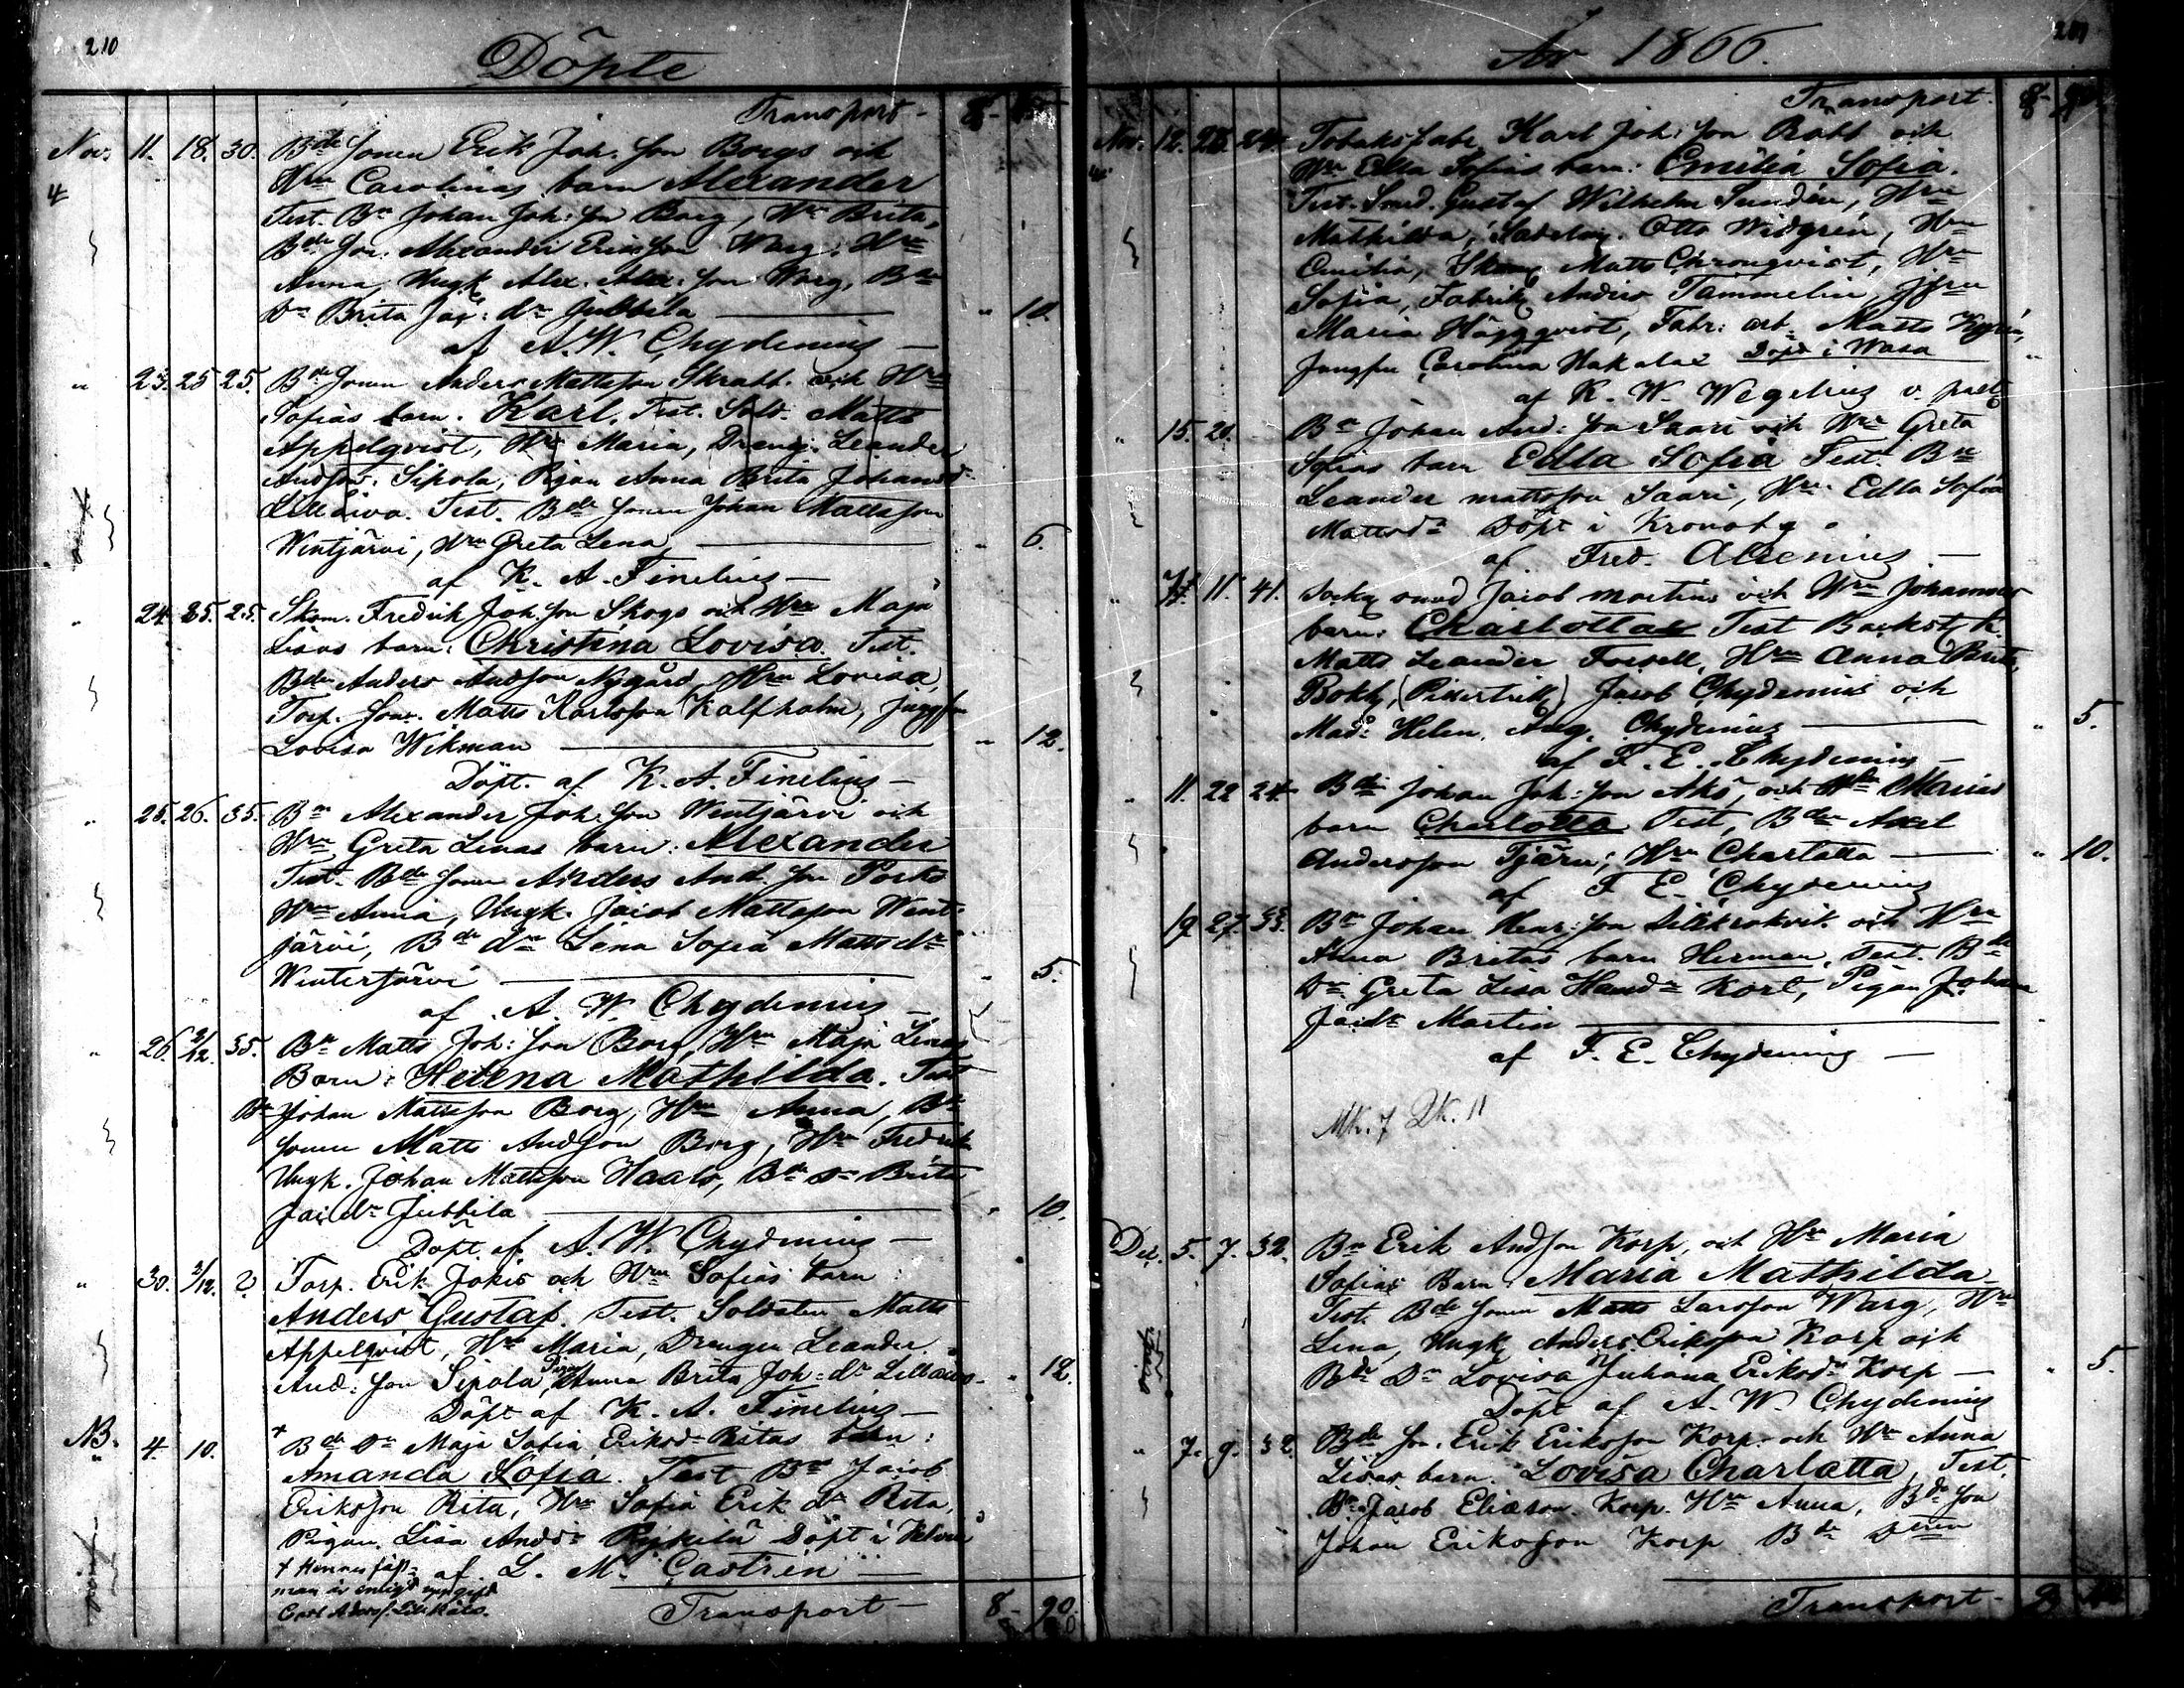 210
Döpte
Transport - 8-
Nov. 11. 18. 30. Bde Sonen Erik Joh: Son Borgs och
4 Hru Carolinas barn Alexander
Test. Bn Johan Joh: Son Borg, Hru Brita,
Bde Son. Alexander Ericsson Warg, Hru
Anna, Ungk Alex. Alex: Son Warg, Bde
dn Brita Jac: dr Jubbila — " 10.
af A. W. Chydenius —
" 23. 25 25. Bde Sonen Anders Mattsson Skrabb. och Hru
Sofias barn. Karl. Test. Sold. Matts
Appelqvist, Hru Maria, Dreng. Leander
Andson. Sipola, Pigan Anna Brita Johansd
Test. Bde Sonen Johan Mattsson
Wintjärvi, Hru Greta Lena — " 6.
af K. A. Finelius —
" 24. 25. 25. Skom. Fredrik Joh. Son Skogs och Hru Maja
Lisas barn: Christina Lovisa. Test.
Bden Anders Andson Nygård, Hru Lovisa,
Torp. Son. Matts Karlsson Kalfholm, Jungfru
Lovisa Wikman — " 12.
Döpt. af K. A. Finelius —
" 25. 26. 35. Bn Alexander Joh: Son Wintjärvi och
Hru Greta Lenas barn: Alexander
Test. Bde Sonen Anders And. Son Porko
Hru Anna, Ungk. Jacob Mattsson Went-
järvi, Bde dn Lena Sofia Mattsdr
Winterjärvi — " 5.
af A. W. Chydenius —
" 26. 2/12. 35. Bn Matts Joh: Son Borg, Hru Maja Lenas
Barn: Helena Mathilda. Test
Bn Johan Mattsson Borg, Hru Anna, Bde
Sonen Matts Andson Borg, Hru Fredrik
Ungk. Johan Mattsson Haals, Bde Dn Brita
Jac. dr Jubbila — " 10.
Döpt. af A. W. Chydenius —
" 30. 2/12. ? Torp. Erik Jokis och Hru Sofias barn:
Anders Gustaf. Test. Soldaten Matts
Appelqvist, Hru Maria, Drengen Leander
And: Son Sipola, Pigan Anna Brita Joh: dr — " 12.
Döpt af K. A. Finelius —
NB. " 4. 10. + Bde Dn Maja Sofia Eriksd. Ritas barn:
Amanda Sofia. Test Bn Jacob
Eriksson Rita, Hru Sofia Erik dr Rita,
Pigan Lisa Andd. Döpt i
+ Hennes fäst- af L. M. Castrén —
man är enligt uppgift
Transport — 8- 90
År 1866.
Transport. 8-
Nov. 12. Tobaksfabr. Karl Joh: Son Rabb och
Hru Edla Sofias barn: Emilia Sofia.
Test. Smed. Gustaf Wilhelm Sundén, Hru
Mathilda, Sadelm. Otto Widgrén, Hru
Emilia, Matts Chronqvist, Hru
Sofia, Fabrik. Anders Tammelin, Jfru
Maria Häggqvist, Fabr: arb. Matts
Jungfru Carolina Döpt i Wasa — "
af K. W. Wegelius v. past.
" 15. 21. Bn Johan And: Son Saari och Hru Greta
Sofias barn Edla Sofia Test. Bn
Leander mattsson Saari, Hru Edla Sofia
Mattsdr Döpt i Kronoby.
af Fred. Alcenius —
" 11. 41. smed Jacob Martins och Hru Johannas
barn: Charlotta Test
Matts Leander Forsell, Hru Anna Brita,
Bokh. Jacob Chydenius och
Mad: Helen. Aug. Chydenius — " 5.
af F. E. Chydenius —
" 11. 22 24. Bde johan Joh: Son Aks, och Hru Marias
barn Charlotta Test, Bden Axel
Andersson Tjäru, Hru Charlotta — " 10.
af F. E. Chydenius
19 27. 33. Bn Johan Henr: Son och Hru
Anna Britas barn Herman, Test. Bde
Dn Greta Lisa Hansdr Kort, Pigan Johanna
Jacdr Martin —
af F. E. Chydenius —
Mk. 7 Qk. 11
Dec. 5. 7. 32. Bn Erik Andson Korp, och Hru Maria
Sofias Barn: Maria Mathilda
Test. Bde Sonen Matts Larsson Warg, Hru
Lena, Ungk. Anders Eriksson Korp och
Bde Dn Lovisa Juliana Eriksdr Korp — " 5.
Döpt af A. W. Chydenius
" 7. 9. 32. Bde Son. Erik Eriksson Korp. och Hru Anna
Lisas barn. Lovisa Charlotta, Test.
Bn Jacob Eliæson Korp. Hru Anna, Bde Son
Johan Eriksson Korp Bde Dtren
Transport -